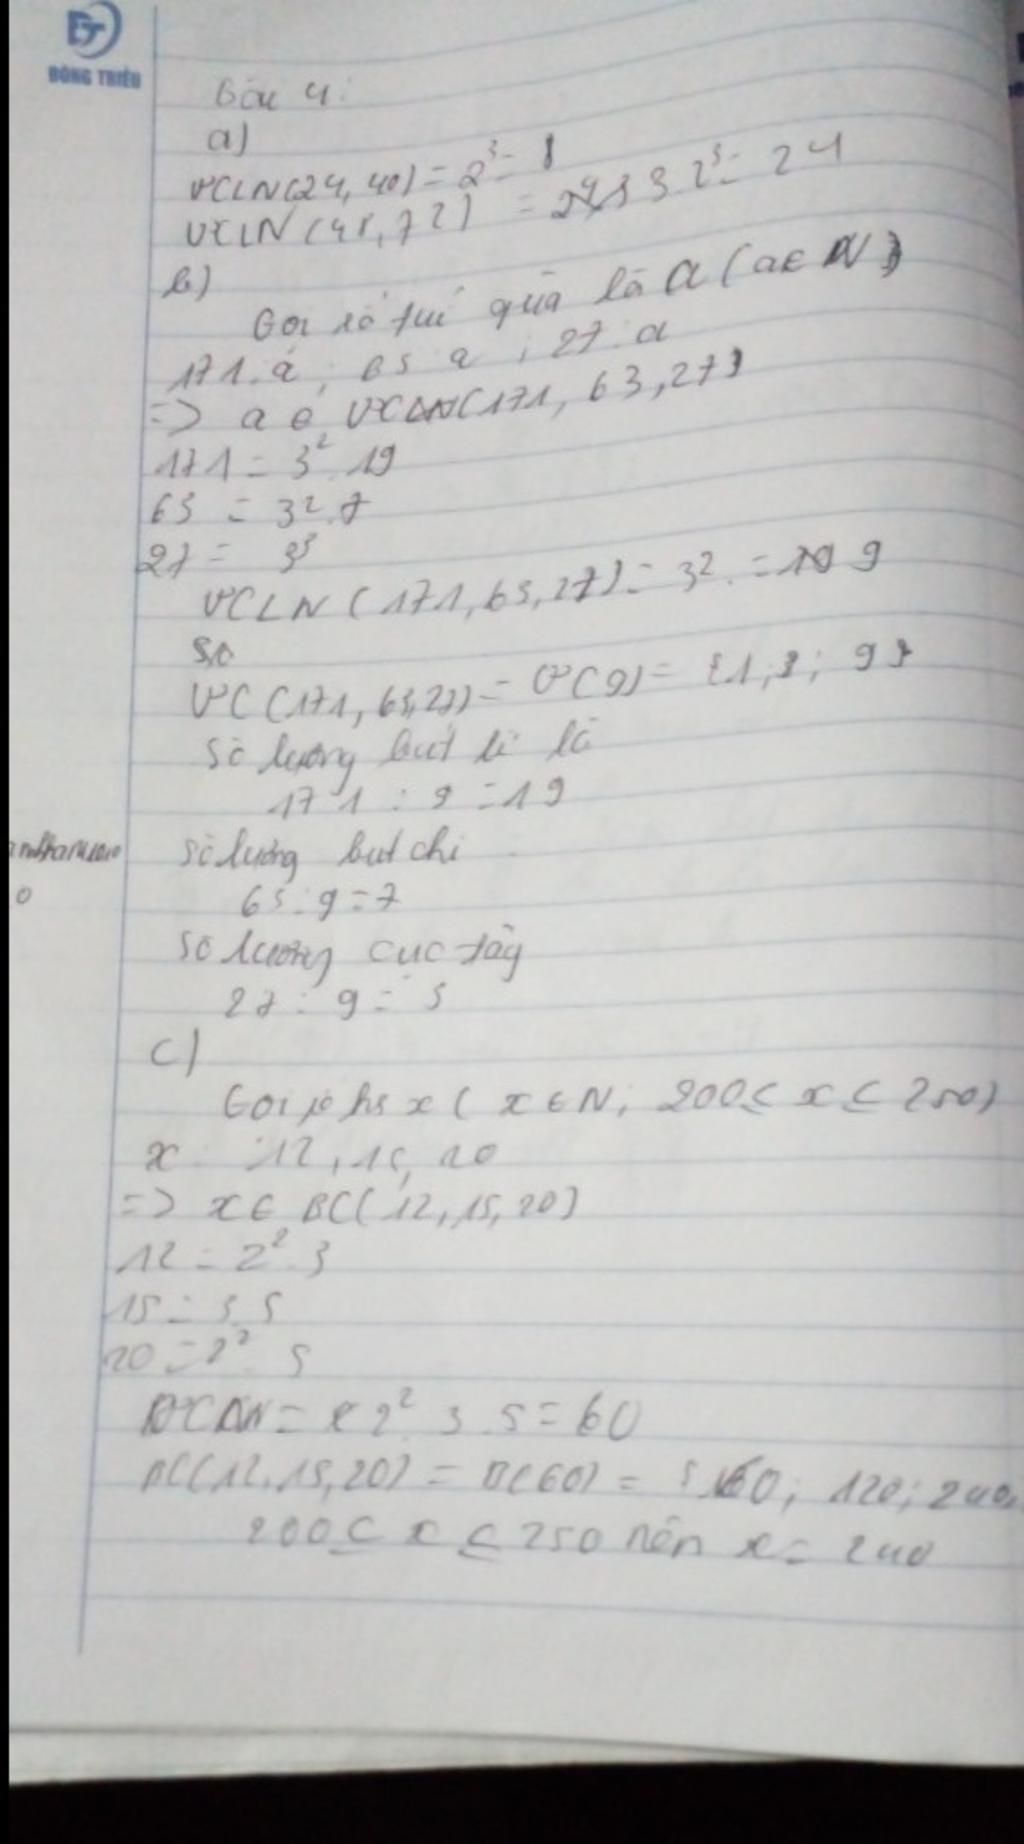 ĐÔNG TRIỀU
Câu 4:
a)
ƯCLN(24, 40) = 2³ = 8
ƯCLN(48, 72) = 3 2³ = 24
b)
Gọi số túi quà là a (a ∈ N)
171 : a ; 63 a ; 27 : a
=> a ∈ ƯCLN(171, 63, 27)
171 = 3² . 19
63 = 3² . 7
27 = 3³
ƯCLN (171, 63, 27) = 3² . = 9
ƯC (171, 63, 27) = Ư(9) = {1; 3; 9}
Số lượng bút bi là
171 : 9 = 19
Số lượng bút chì
63 : 9 = 7
Số lượng cục tẩy
27 : 9 = 3
c)
Gọi số hs x ( x ∈ N; 200 ≤ x ≤ 250)
x : 12, 15, 20
=> x ∈ BC( 12, 15, 20)
12 = 2² . 3
15 = 3 . 5
20 = 2² . 5
= 2² . 3 . 5 = 60
BC(12, 15, 20) = B(60) = { 60; 120; 240;
200 ≤ x ≤ 250 nên x = 240